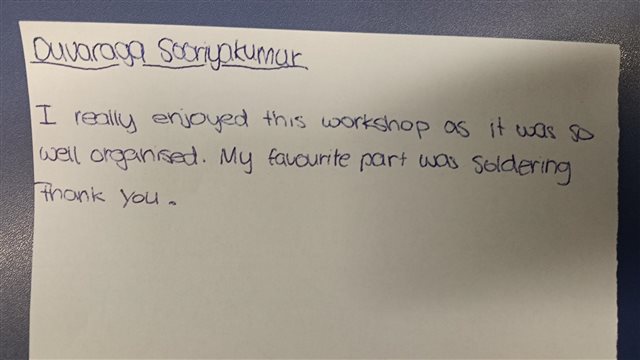 Duvaraga Sooriyakumar
I really enjoyed this workshop as it was so
well organised. My favourite part was soldering
Thank you.